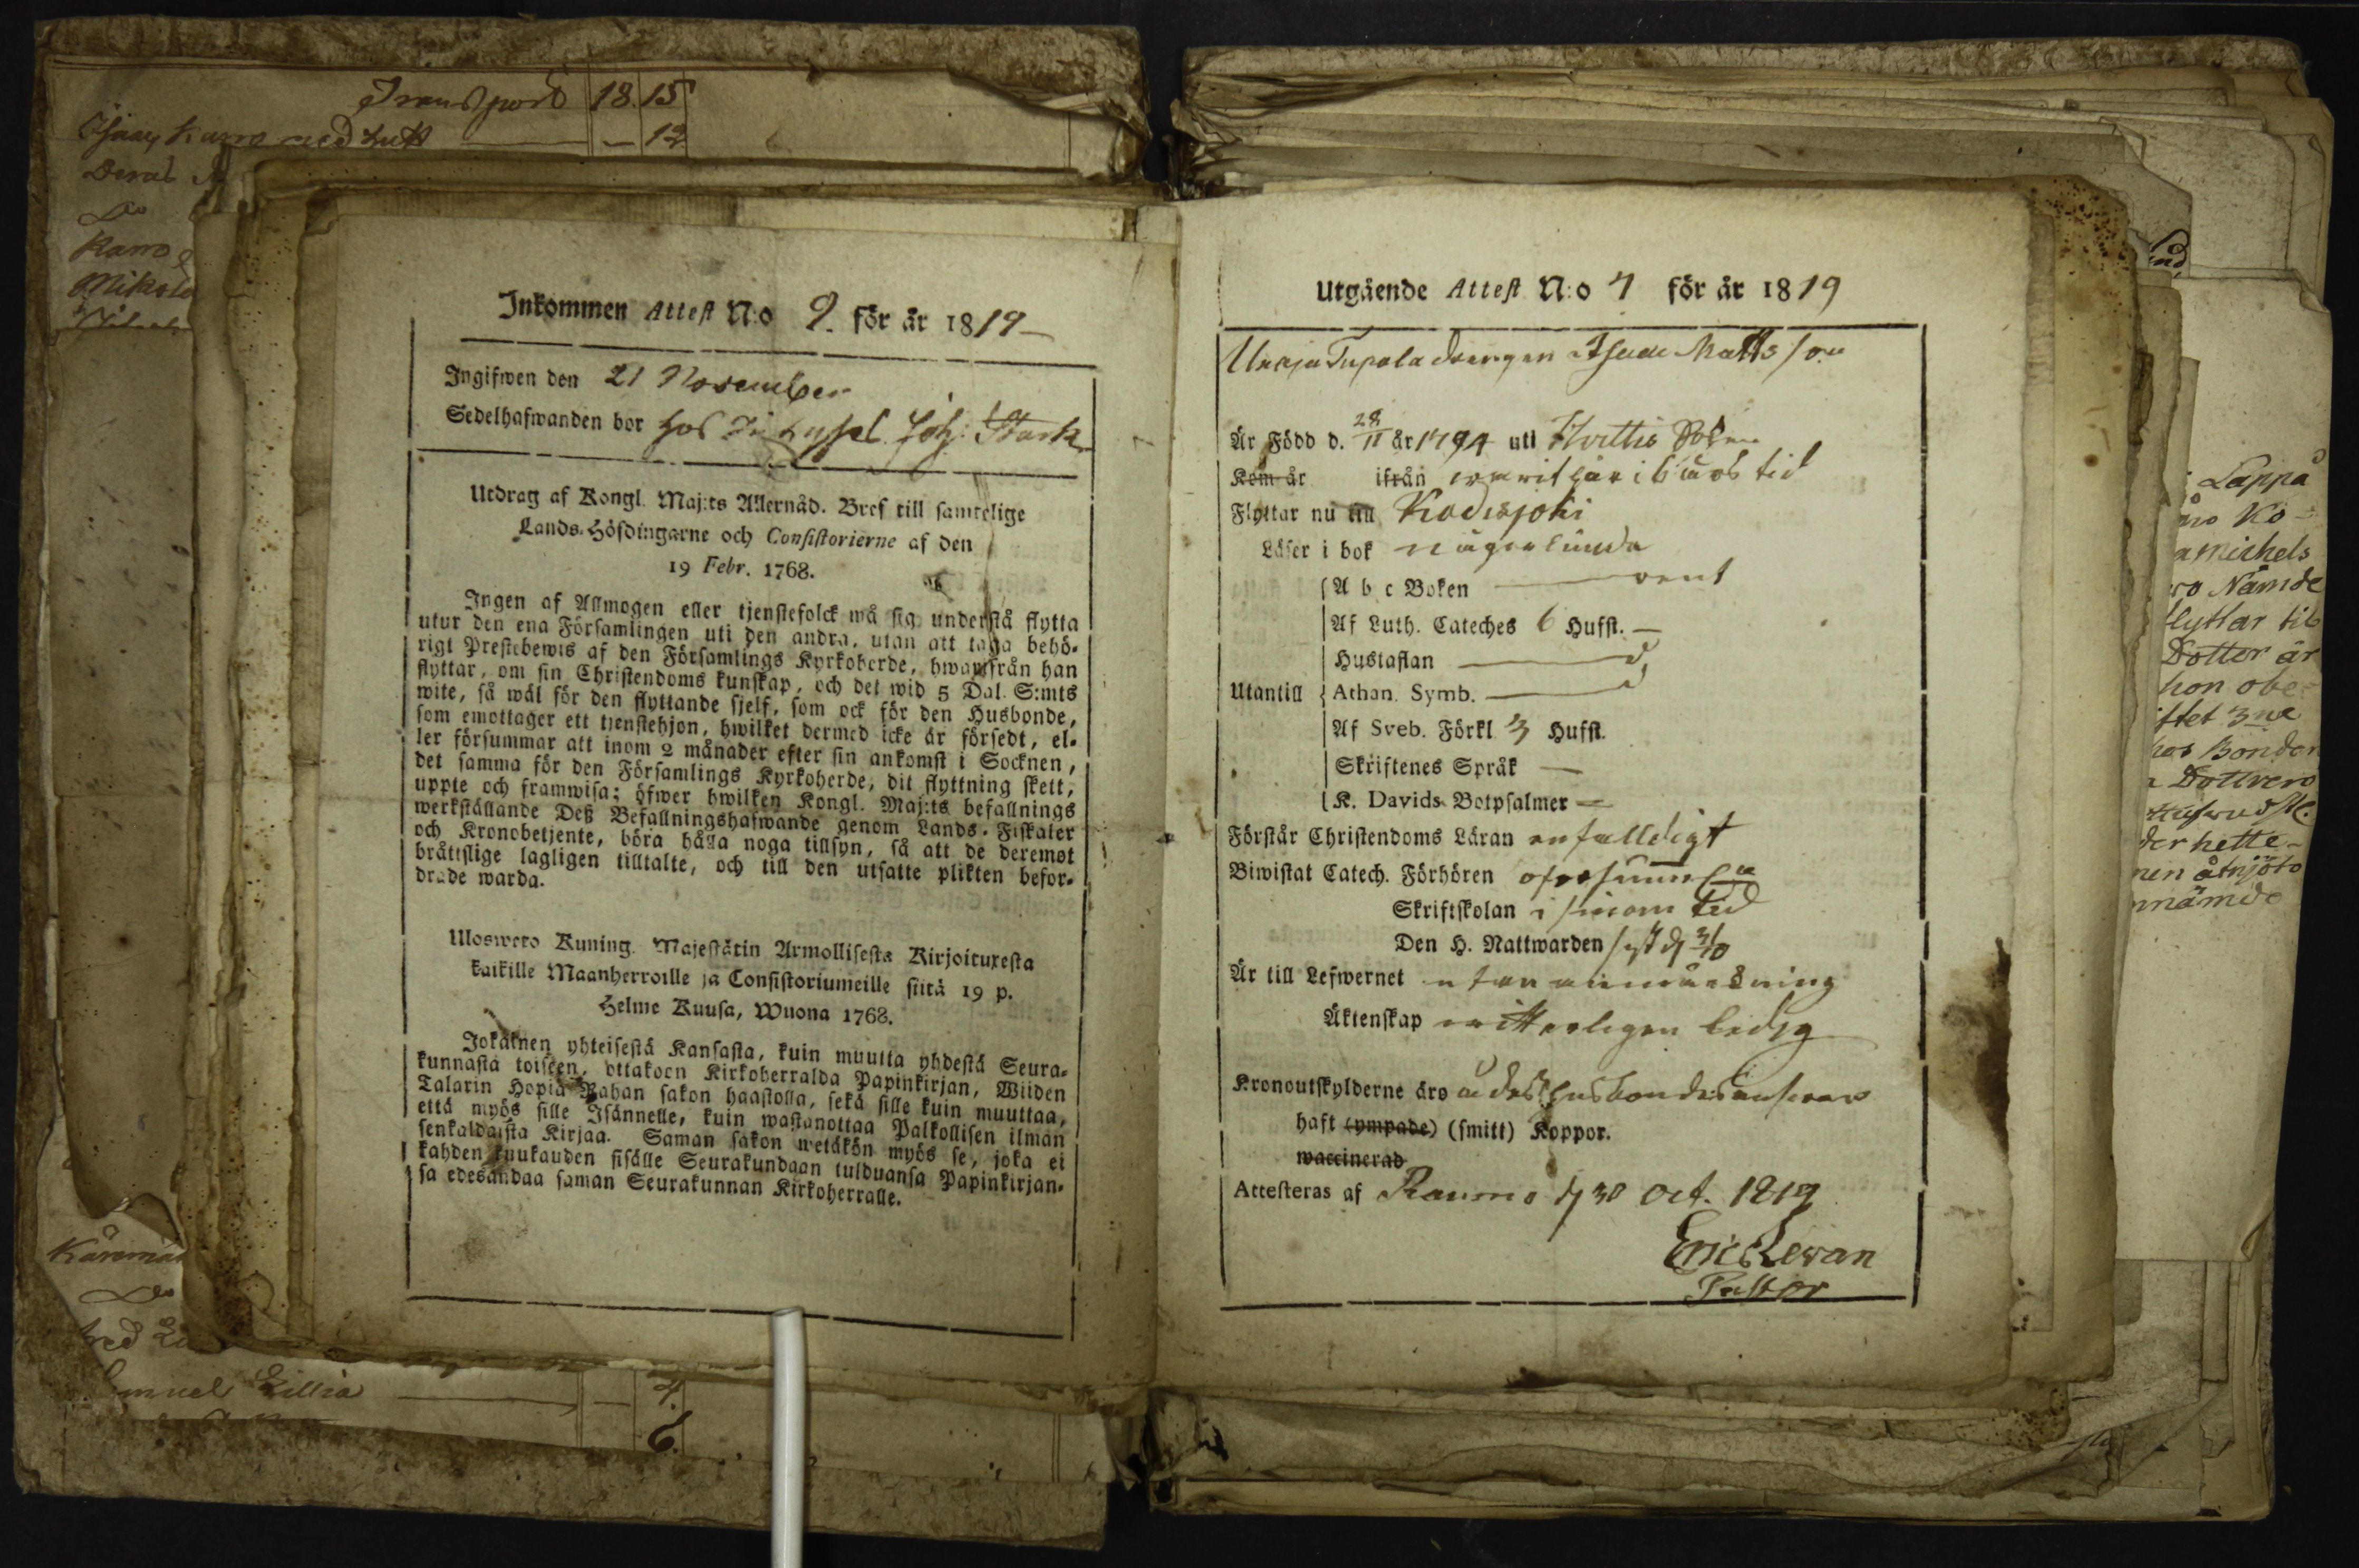 Transport 18. 15
Isaac Karro med hust — 12
Deras
Do
Karro
Mikola
Inkommen Attest N:o 9. för år 1819
Ingifwen den 21 November
Sedelhafwanden bor hos Joh: Stark
Utdrag af Kongl. Maj:ts Allernåd. Bref till samtelige
Lands-Höfdingarne och Consistorierne af den
19 Febr. 1768.
Ingen af Allmogen eller tjenstefolck må sig understå flytta
utur den ena Församlingen uti den andra, utan att taga behö-
rigt Prestebewis af den Församlings Kyrkoherde, hwarifrån han
flyttar, om sin Christendoms kunskap, och det wid 5 Dal. S:mts
wite, så wäl för den flyttande sjelf, som ock för den Husbonde,
som emottager ett tjenstehjon, hwilket dermed icke är försedt, el-
ler försummar att inom 2 månader efter sin ankomst i Socknen,
det samma för den Församlings Kyrkoherde, dit flyttning skett,
uppte och framwisa; öfwer hwilken Kongl. Maj:ts befallnings
werkställande Deß Befallningshafwande genom Lands-Fiskaler
och Kronobetjente, böra hålla noga tillsyn, så att de deremot
bråttslige lagligen tilltalte, och till den utsatte plikten befor-
drade warda.
Ulosweto Kuning. Majestätin Armollisesta Kirjoituxesta
kaikille Maanherroille ja Consistoriumeille siitä 19 p.
Helme Kuusa, Wuona 1768.
Jokainen yhteisestä Kansasta, kuin muutta yhdestä Seura-
kunnasta toiseen, ottakoon Kirkoherralda Papinkirjan, Wiiden
Talarin Hopia Rahan sakon haastolla, sekä sille kuin muuttaa,
että myös sille Isännelle, kuin wastanottaa Palkollisen ilman
senkaldaista Kirjaa. Saman sakon wetäkön myös se, joka ei
kahden kuukauden sisälle Seurakundaan tulduansa Papinkirjan-
sa edesandaa saman Seurakunnan Kirkoherralle.
Käremä
Do
Samuel Lillia — 4.
6.
Utgående Attest N:o 7 för år 1819
Unaja Tupala drengen Isaac Matts son
Är Född d. 28/11 år 1794 uti Hvittis Sokn
Kom år ifrån warit här i 6 års tid
Flyttar nu till Kodisjoki
Läser i bok någorlunda
A b c Boken — rent
Af Luth. Cateches 6 Hufst. —
Hustaflan — d
Utantill Athan. Symb. — d
Af Sveb. Förkl 3 Hufst.
Skriftenes Språk —
K. Davids Botpsalmer —
Förstår Christendoms Läran enfalldigt
Biwistat Catech. Förhören
Skriftskolan i sinom tid
Den H. Nattwarden sist d 3/10
Är till Lefwernet utan anmärkning
Äktenskap witterligen ledig
Kronoutskylderne äro å dess husbondes answar
haft (ympade) (smitt) Koppor.
waccinerad
Attesteras af Raumo d 30 Oct. 1819
Eric Lewan
Pastor
Lappå
Ko-
Michels
Nämde
flyttar til
Dotter är
hon obe-
ftet 3ne
hos Bonden
Dottrero
der hette-
nen åtnjöto
nämde